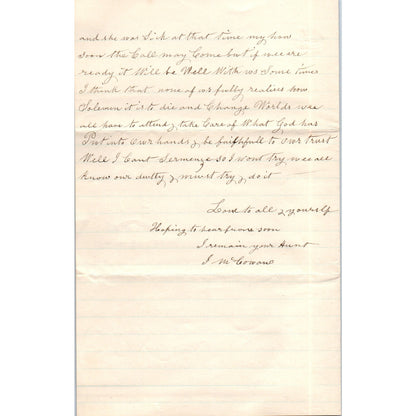 and she was Sick at that time my how
soon the Call may Come but if wee are
ready it Will be Well With us Some times
I think that none of us fully realise how
Solemn it is to die and Change Worlds wee
all have to attend & take Care of What God has
Put into Our hands & be faithfull to Our trust
Well I Cant Sermenize so I wont try wee all
know our dutty & must try & do it
Love to all & yourself
Hoping to hear from soon
I remain your Aunt
J McCowan